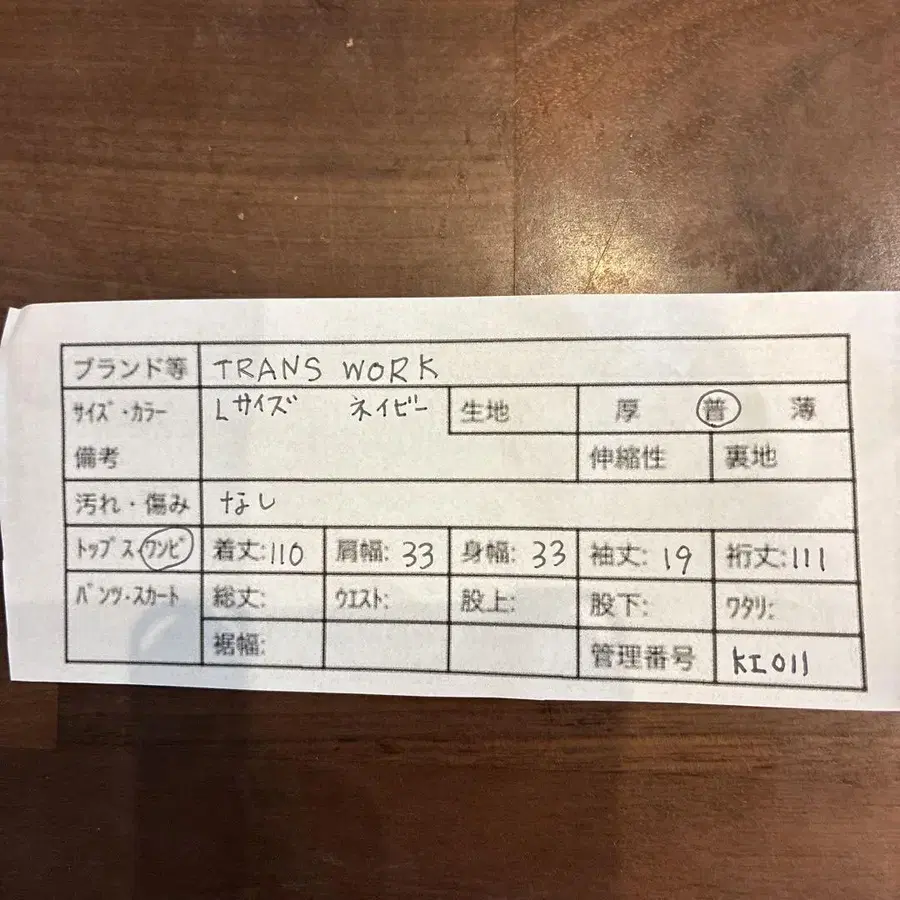 ブランド等 TRANS WORK
サイズ・カラー Lサイズ ネイビー 生地 厚 普 薄
備考 伸縮性 裏地
汚れ・傷み なし
トップス・ワンピ 着丈:110 肩幅:33 身幅:33 袖丈:19 裄丈:111
パンツ・スカート 総丈: ウエスト: 股上: 股下: ワタリ:
裾幅: 管理番号 KI011